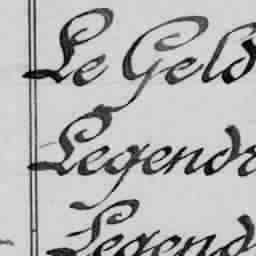 Le Geld
Legendr
Legend